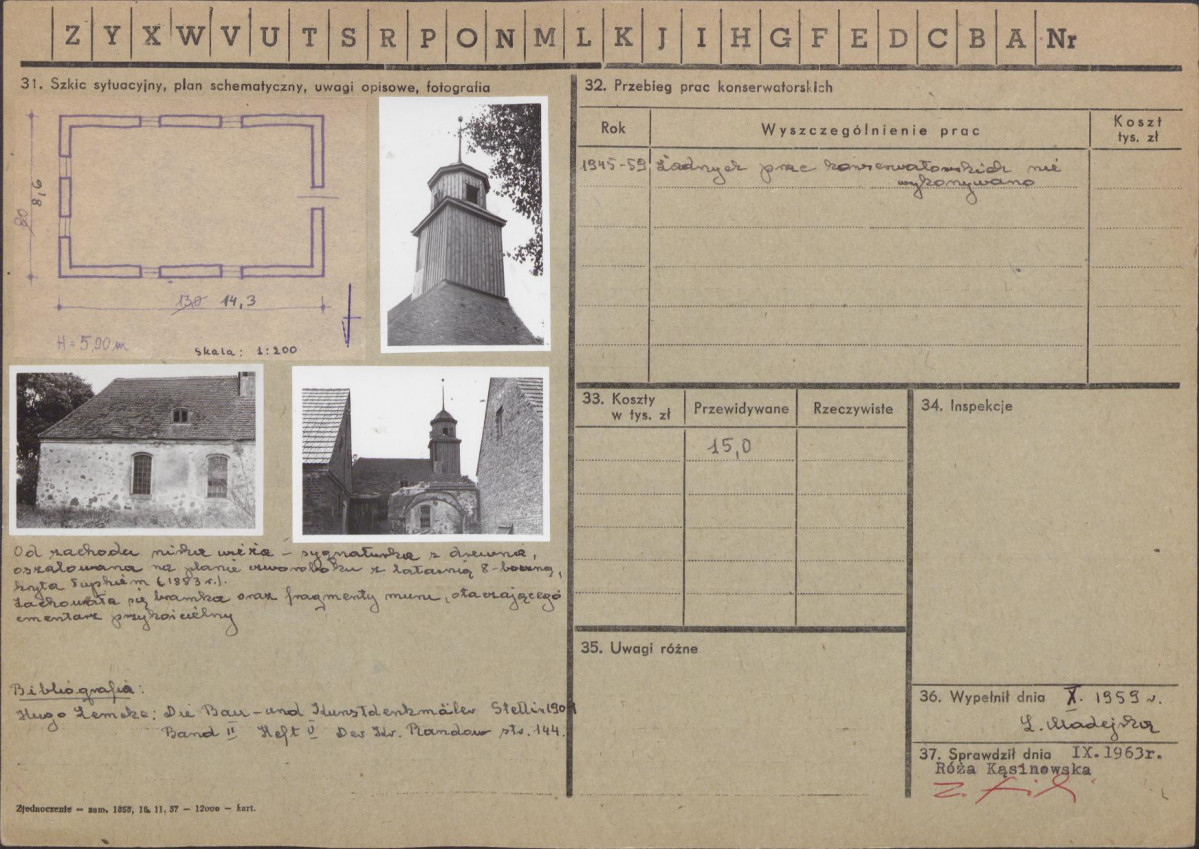 Z Y X W V U T S R P O N M L K J I H G F E D C B A Nr
31. Szkic sytuacyjny, plan schematyczny, uwagi opisowe, fotografia
8,6
13,0 14,3
H = 5,00 m
Skala: 1:200
Od zachodu niska wieża - sygnaturka z drewna,
oszalowana na planie czworoboku z latarnią 8-boczną,
kryta łupkiem (1883 r.).
Zachowała się bramka oraz fragmenty muru, otaczającego
cmentarz przykościelny
Bibliografia:
Hugo Lemcke: Die Bau- und Kunstdenkmäler Stettin 1901
Band II Heft V Der Kr. Randow str. 144.
Zjednoczenie — zam. 1858, 16. 11. 57 — 12000 — kart.
32. Przebieg prac konserwatorskich
Rok Wyszczególnienie prac Koszt
tys. zł
1945-59 Żadnych prac konserwatorskich nie
wykonywano
33. Koszty
w tys. zł Przewidywane Rzeczywiste
15,0
34. Inspekcje
35. Uwagi różne
36. Wypełnił dnia X. 1959 r.
L. Madejska
37. Sprawdził dnia IX.1963r.
Róża Kąsinowska